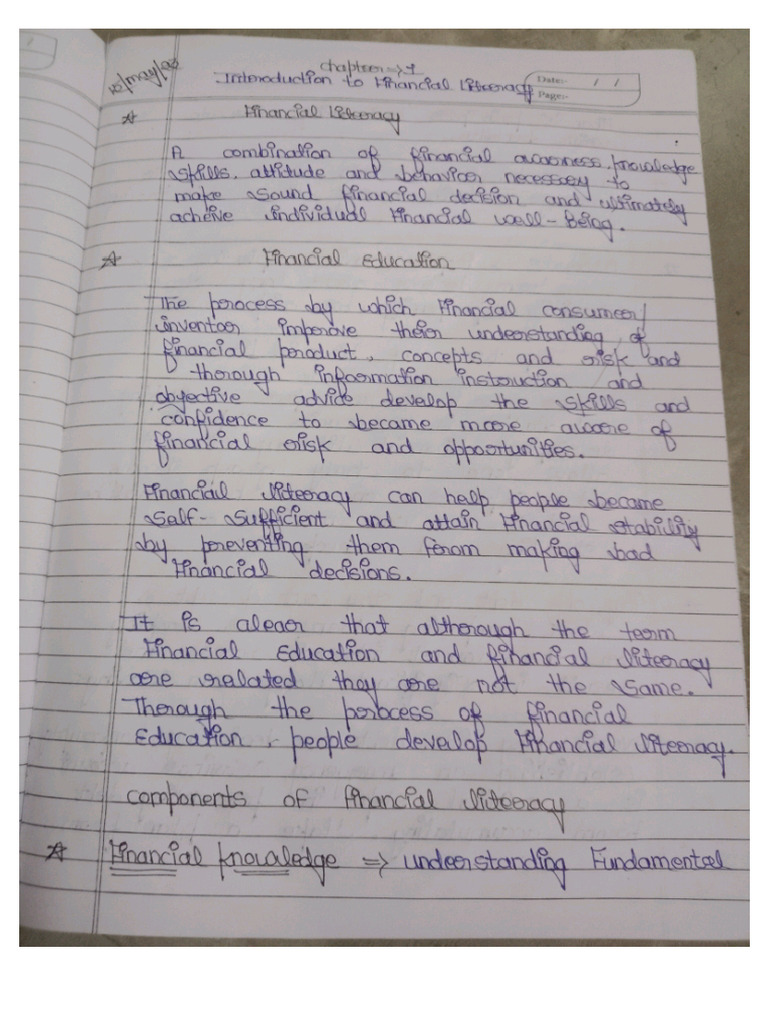 chapter => 1
Introduction to Financial Literacy
Date:- / /
Page:-
☆ Financial Literacy
A combination of financial awareness, knowledge
skills, attitude and behavior necessary to
make sound financial decision and ultimately
acheive individual Financial well-Being.
☆ Financial Education
The process by which Financial consumer/
inventor improve their understanding of
financial product, concepts and risk and
thorough information instruction and
objective advide develop the skills and
confidence to became more aware of
financial risk and opportunities.
Financial literacy can help people became
Self-Sufficient and attain Financial stability
by preventing them from making bad
Financial decisions.
It is clear that although the term
Financial Education and financial literacy
are related they are not the same.
Through the process of financial
Education, people develop Financial literacy.
components of financial literacy
☆ Financial knowledge => understanding Fundamental